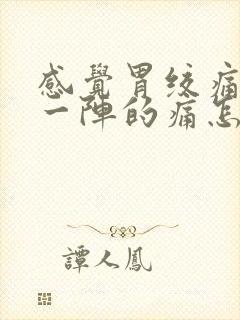 感覺胃绞痛
一陣的痛怎
譚人鳳